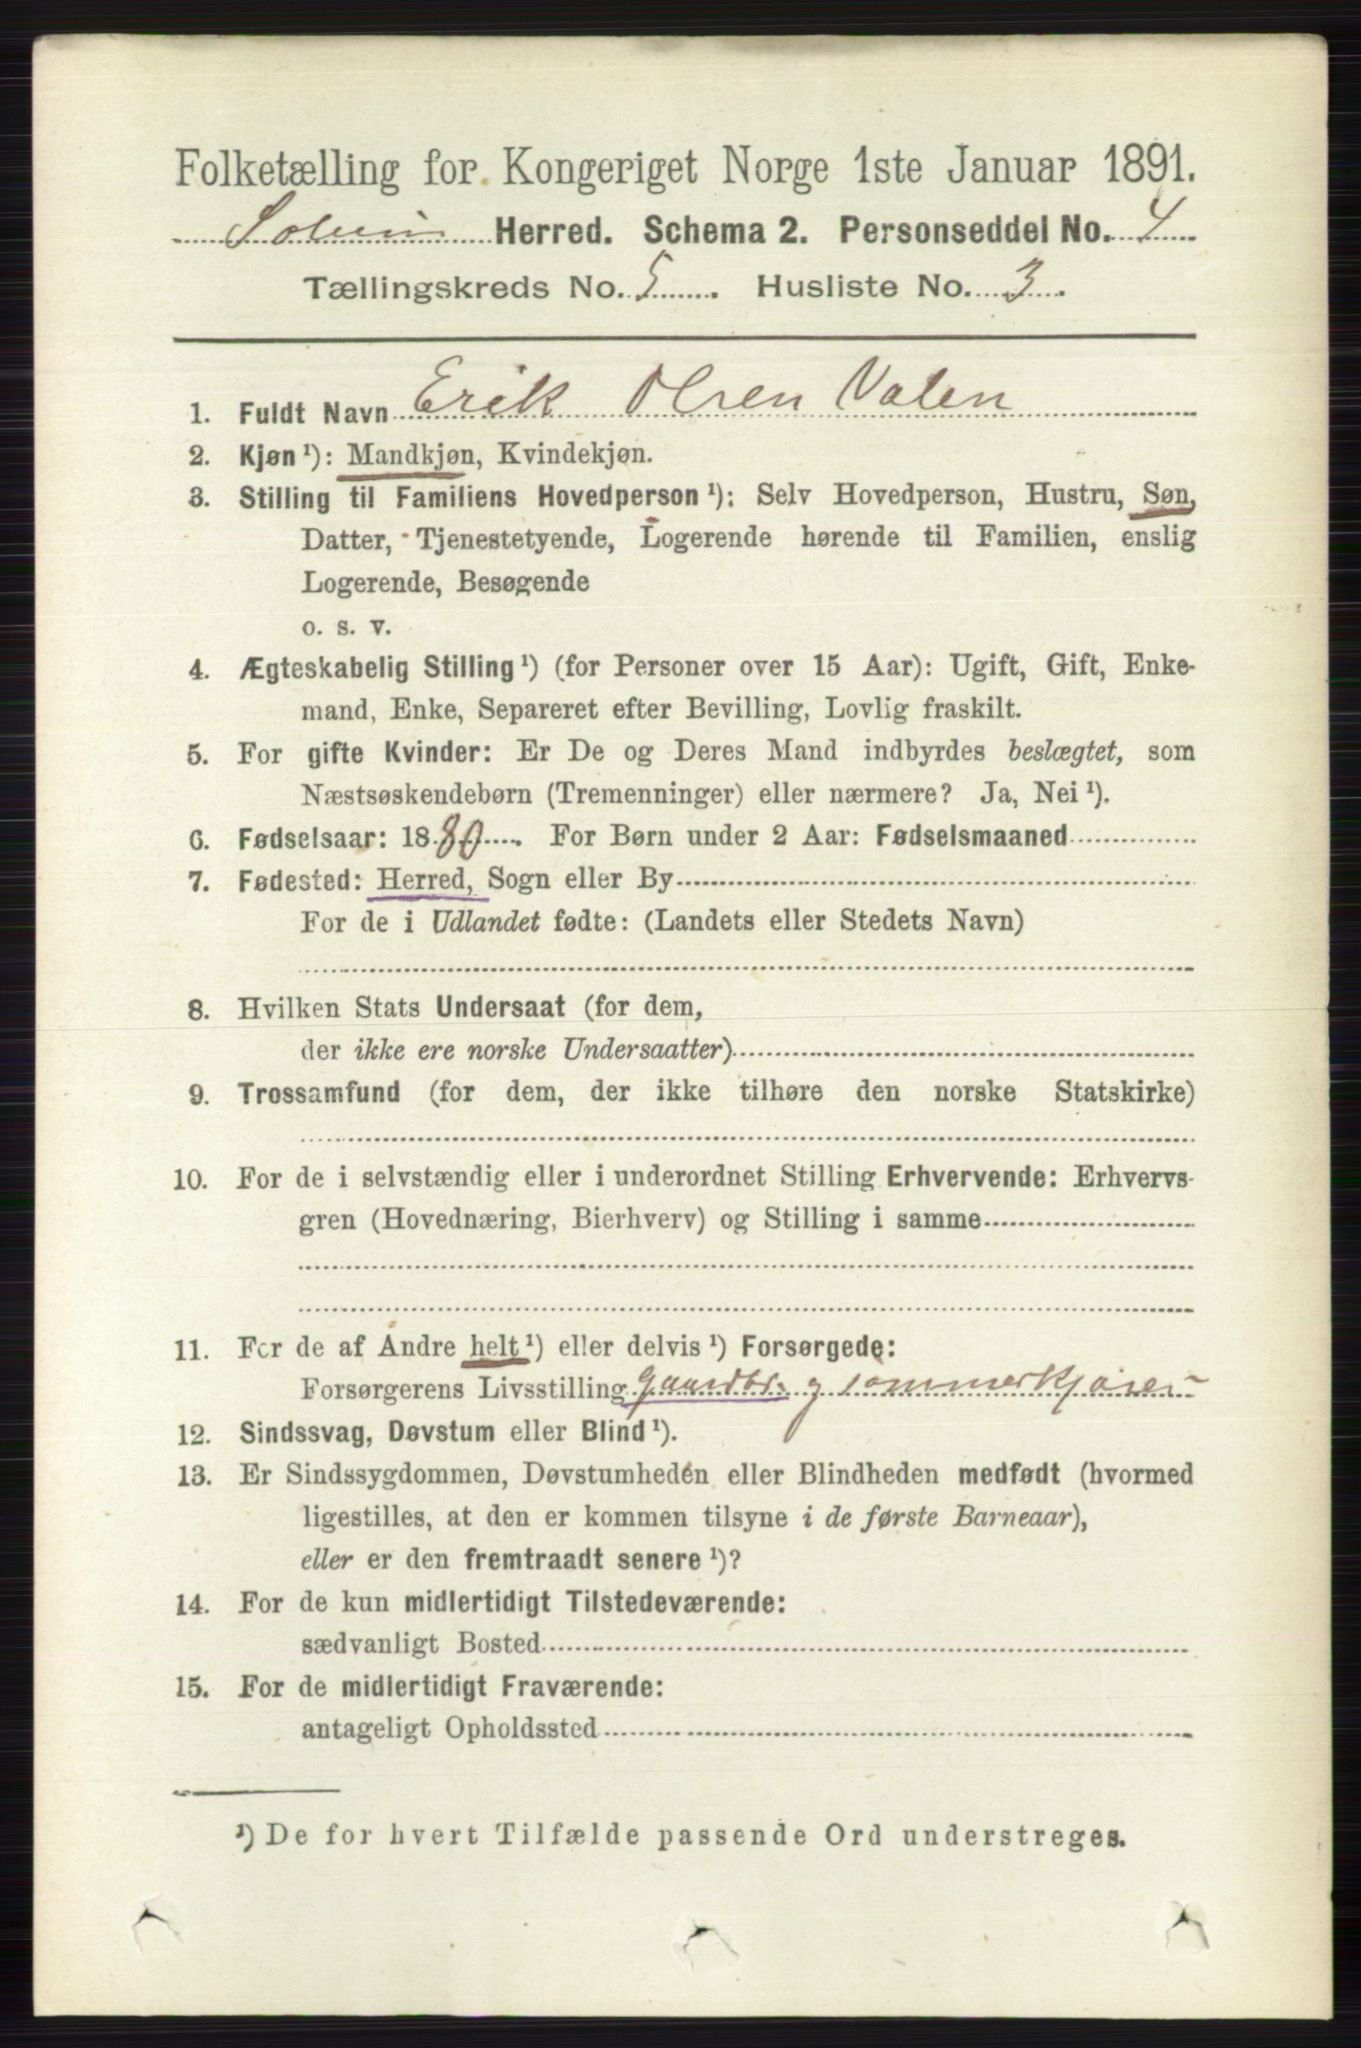 Folketælling for Kongeriget Norge 1ste Januar 1891.
Solum Herred. Schema 2. Personseddel No. 4
Tællingskreds No. 5. Husliste No. 3.
1. Fuldt Navn Erik Olsen Valen
2. Kjøn ¹): Mandkjøn, Kvindekjøn.
3. Stilling til Familiens Hovedperson ¹): Selv Hovedperson, Hustru, Søn,
Datter, Tjenestetyende, Logerende hørende til Familien, enslig
Logerende, Besøgende
o. s. v.
4. Ægteskabelig Stilling ¹) (for Personer over 15 Aar): Ugift, Gift, Enke-
mand, Enke, Separeret efter Bevilling, Lovlig fraskilt.
5. For gifte Kvinder: Er De og Deres Mand indbyrdes beslægtet, som
Næstsøskendebørn (Tremenninger) eller nærmere? Ja, Nei ¹).
6. Fødselsaar: 1880. For Børn under 2 Aar: Fødselsmaaned
7. Fødested: Herred, Sogn eller By
For de i Udlandet fødte: (Landets eller Stedets Navn)
8. Hvilken Stats Undersaat (for dem,
der ikke ere norske Undersaatter)
9. Trossamfund (for dem, der ikke tilhøre den norske Statskirke)
10. For de i selvstændig eller i underordnet Stilling Erhvervende: Erhvervs-
gren (Hovednæring, Bierhverv) og Stilling i samme
11. For de af Andre helt ¹) eller delvis ¹) Forsørgede:
Forsørgerens Livsstilling gaardbr. og tømmerkjører
12. Sindssvag, Døvstum eller Blind ¹).
13. Er Sindssygdommen, Døvstumheden eller Blindheden medfødt (hvormed
ligestilles, at den er kommen tilsyne i de første Barneaar),
eller er den fremtraadt senere ¹)?
14. For de kun midlertidigt Tilstedeværende:
sædvanligt Bosted
15. For de midlertidigt Fraværende:
antageligt Opholdssted
¹) De for hvert Tilfælde passende Ord understreges.